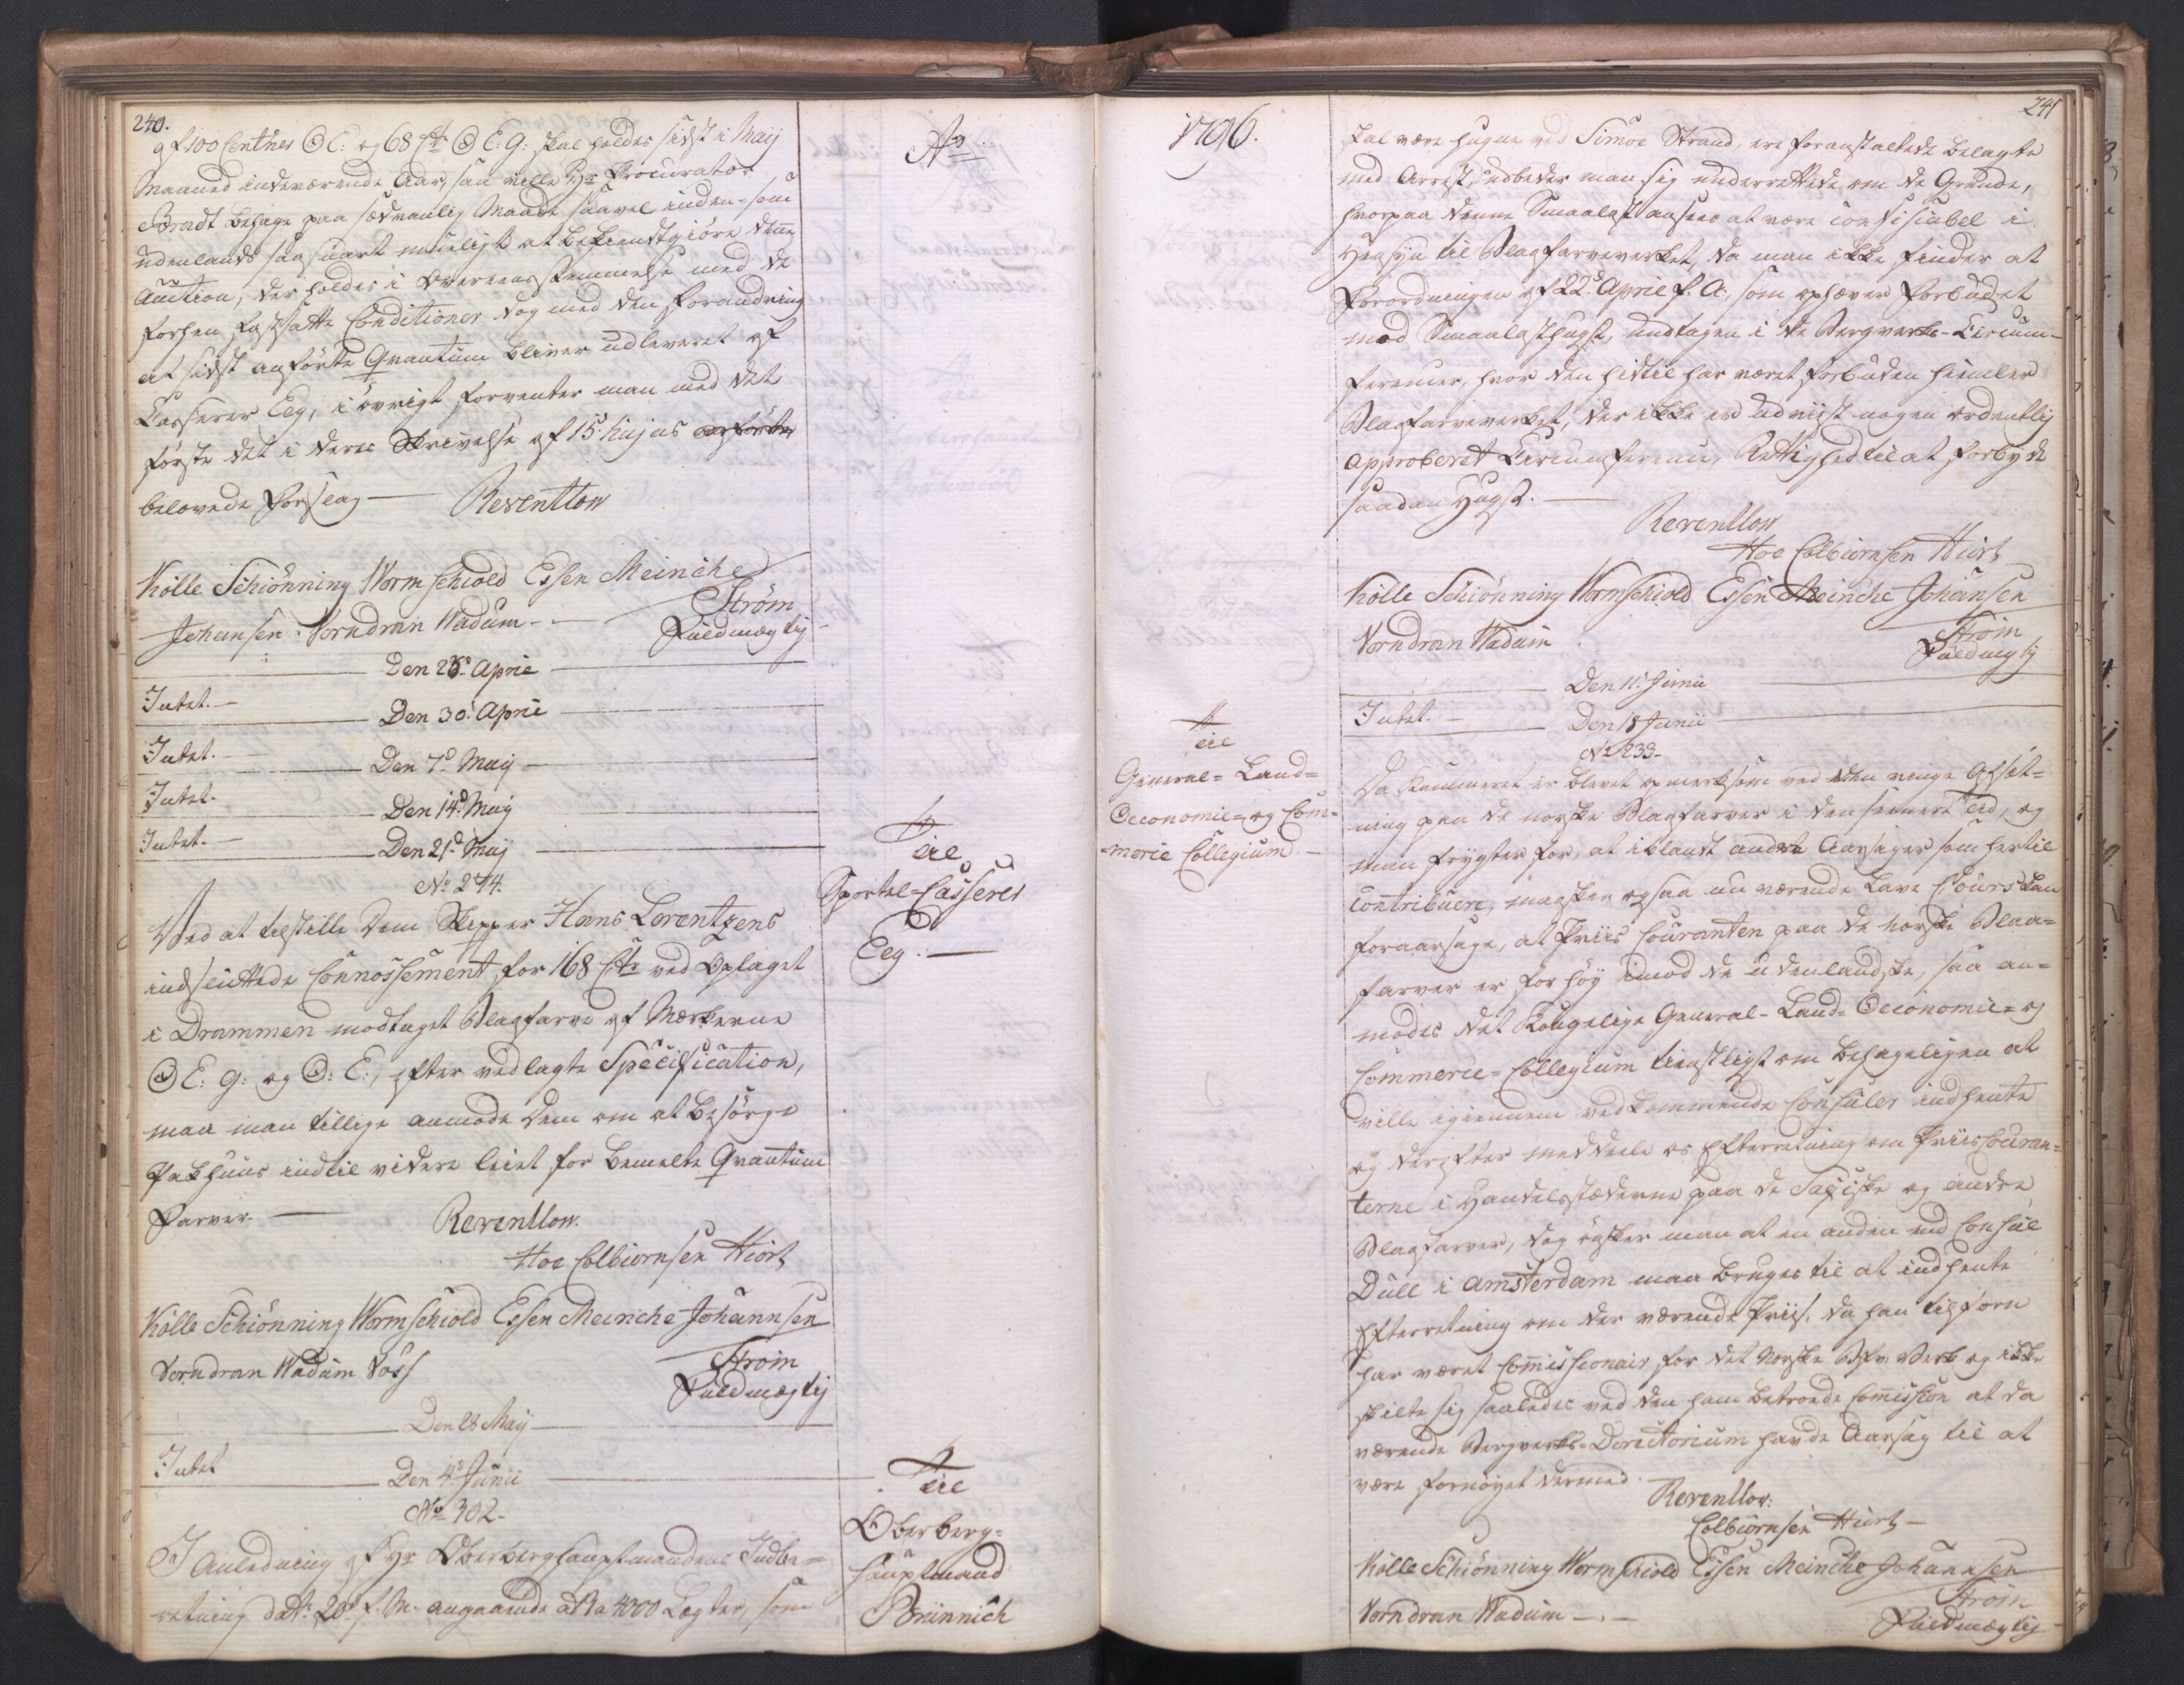 240.
af 100 Centner O C: og 68 Ctr O E: G: skal holdes sidst i Maij
Maaned indeværende Aar, saa ville Hr Procurator
Bradt behage paa sædvanlig Maade saavel inden- som
udenlands saa snart mueligt at bekiendtgiøre denne
Auction, der holdes i Overeensstemmelse med de
forhen fastsatte Conditioner dog med den Forandring
at sidst anførte Qvantum bliver udleveret af
Casserer Eeg, i øvrigt forventer man med det
første det i deres Skrivelse af 15: hujus
belovede Forslag — Reventlow
Kölle Schiönning Wormschiold Essen Meinche
Johansen Vorndran Wadum — Strøm
Fuldmægtig
Den 23d April
Intet. —
Den 30: April
Intet. —
Den 7d Maij
Intet. —
Den 14d Maij
Intet. —
Den 21d Maij
No 274.
Ved at tilstille Dem Skipper Hans Lorentzens
indsluttede Connossement for 168 Ctr ved Oplaget
i Drammen modtaget Blaafarve af Mærkerne
O E: G: og O: E:, efter vedlagte Specification,
maa man tillige anmode Dem om at besørge
Pakhuus indtil videre leiet for bemelte Qvantum
Farver. — Reventlow.
Hoe Colbiørnsen Hiort
Kölle Schiönning Wormschiold Essen Meinche Johannsen
Vorndran Wadum Voss Strøm
Fuldmægtig
Den 28 Maij
Intet
Den 4d Junii
No 302.
I Anledning af Hr Oberberghauptmandens Indbe=
retning dat: 20d f. M. angaaende at 3 a 4000 Lægter, som
Ao
Til
Sportel-Casserer
Eeg. —
Til
Oberberg=
hauptmand
Brünnich
1796.
Til
General= Land=
Oeconomie= og Com=
=merce Collegium. —
241
skal være hugne ved Simoe Strand, ere foranstaltede belagte
med Arrest, udbeder man sig underrettede om de Grunde,
hvorpaa denne Smaalast ansees at være confiscabel i
Hensyn til Blaafarveverket, da man ikke finder at
Forordningen af 22d April f. A:, som ophæver Forbudet
mod Smaalasthugst, undtagen i de Bergverks-Circum=
ferencer, hvor den hidtil har været forbuden hiemler
Blaafarveverket, der ikke er udviist nogen ordentlig
approberet Circumference, Rettighed til at forbyde
saadan Hugst. —
Reventlow
Hoe Colbiørnsen Hiort
Kölle Schiönning Wormschiold Essen Meinche Johansen
Vorndran Wadum Strøm
Fuldmægtig
Den 11: Junii
Intet. —
Den 18 Junii
No 333.
Da Kammeret er blevet opmerksom ved den ringe Afsæt=
ning paa de norske Blaafarver i den senere Tid, og
man frygter for, at iblandt andre Aarsager som hertil
contribuere, maaskee ogsaa nu værende lave Cours kan
foraarsage, at Priis Couranten paa de norske Blaa=
farver er for høy imod de udenlandske, saa an=
modes det Kongelige General- Land- Oeconomie= og
Commerce= Collegium tienstligst om behageligen at
ville igiennem vedkommende Consuler indhente
og derefter meddeele os Efterretning om Priiscouran=
terne i Handelsstæderne paa de Saxiske og andre
Blaafarver, dog ønsker man at en anden end Consul
Dull i Amsterdam maa bruges til at indhente
Efterretning om der værende Priis, da han tilforn
har været Commissionair for det Norske Blfv: Verk og ikke
skilte sig saaledes ved den ham betroede Commission at da
værende Bergverks-Directorium havde Aarsag til at
være fornøyet dermed. Reventlow.
Colbiørnsen Hiort —
Kölle Schiönning Wormschiold Essen Meinche Johannsen
Vorndran Wadum — Strøm
Fuldmægtig